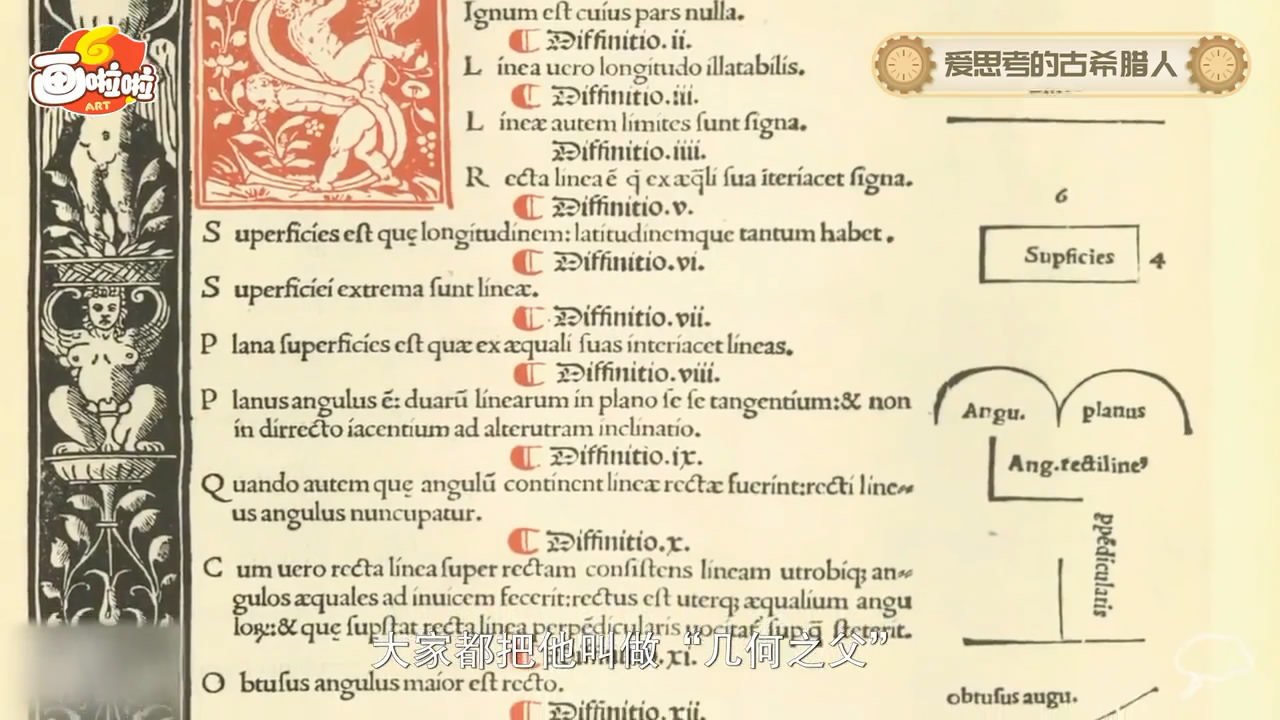 画啦啦
ART
爱思考的古希腊人
Ignum est cuius pars nulla.
Diffinitio.ii.
L inea uero longitudo illatabilis.
Diffinitio.iii.
L ineæ autem limites sunt signa.
Diffinitio.iiii.
R ecta linea ē q̄ ex æq̄li sua īteriacet signa.
Diffinitio.v.
S uperficies est quę longitudinem: latitudinemque tantum habet.
Diffinitio.vi.
S uperficiei extrema sunt lineæ.
Diffinitio.vii.
P lana superficies est quæ ex æquali suas interiacet lineas.
Diffinitio.viii.
P lanus angulus ē: duarū linearum in plano se se tangentium:& non
in dirrecto iacentium ad alterutram inclinatio.
Diffinitio.ix.
Q uando autem quę angulū continent lineæ rectæ fuerint:recti line
us angulus nuncupatur.
Diffinitio.x.
C um uero recta linea super rectam consistens lineam utrobiq; an
gulos æquales ad inuicem fecerit:rectus est uterq; æqualium angu
loꝝ:& quę supstat recta linea perpēdicularis uocitat sup q̄ steterit.
xi.
O btusus angulus maior est recto.
Diffinitio.xii.
6
Supficies
4
Angu. planus
Ang.rectilineꝰ
ppēdicularis
obtusus augu.
大家都把他叫做“几何之父”